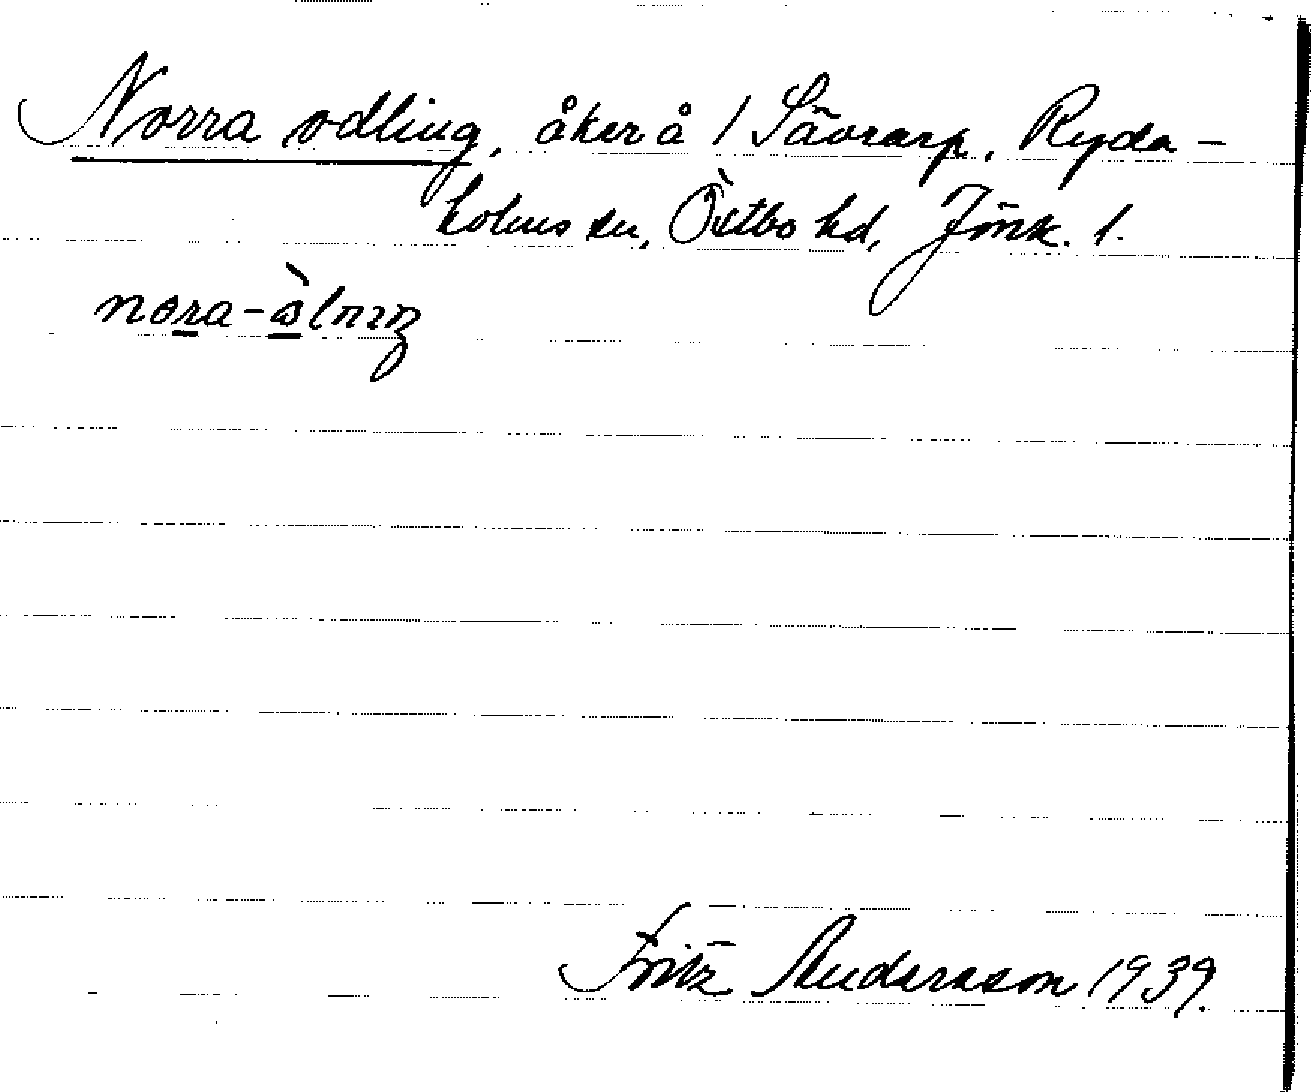 Norra odling, åker å / Sävrarp, Ryda-
holms sn, Östbo hd, Jönk. l.
Fritz Andersson 1939.